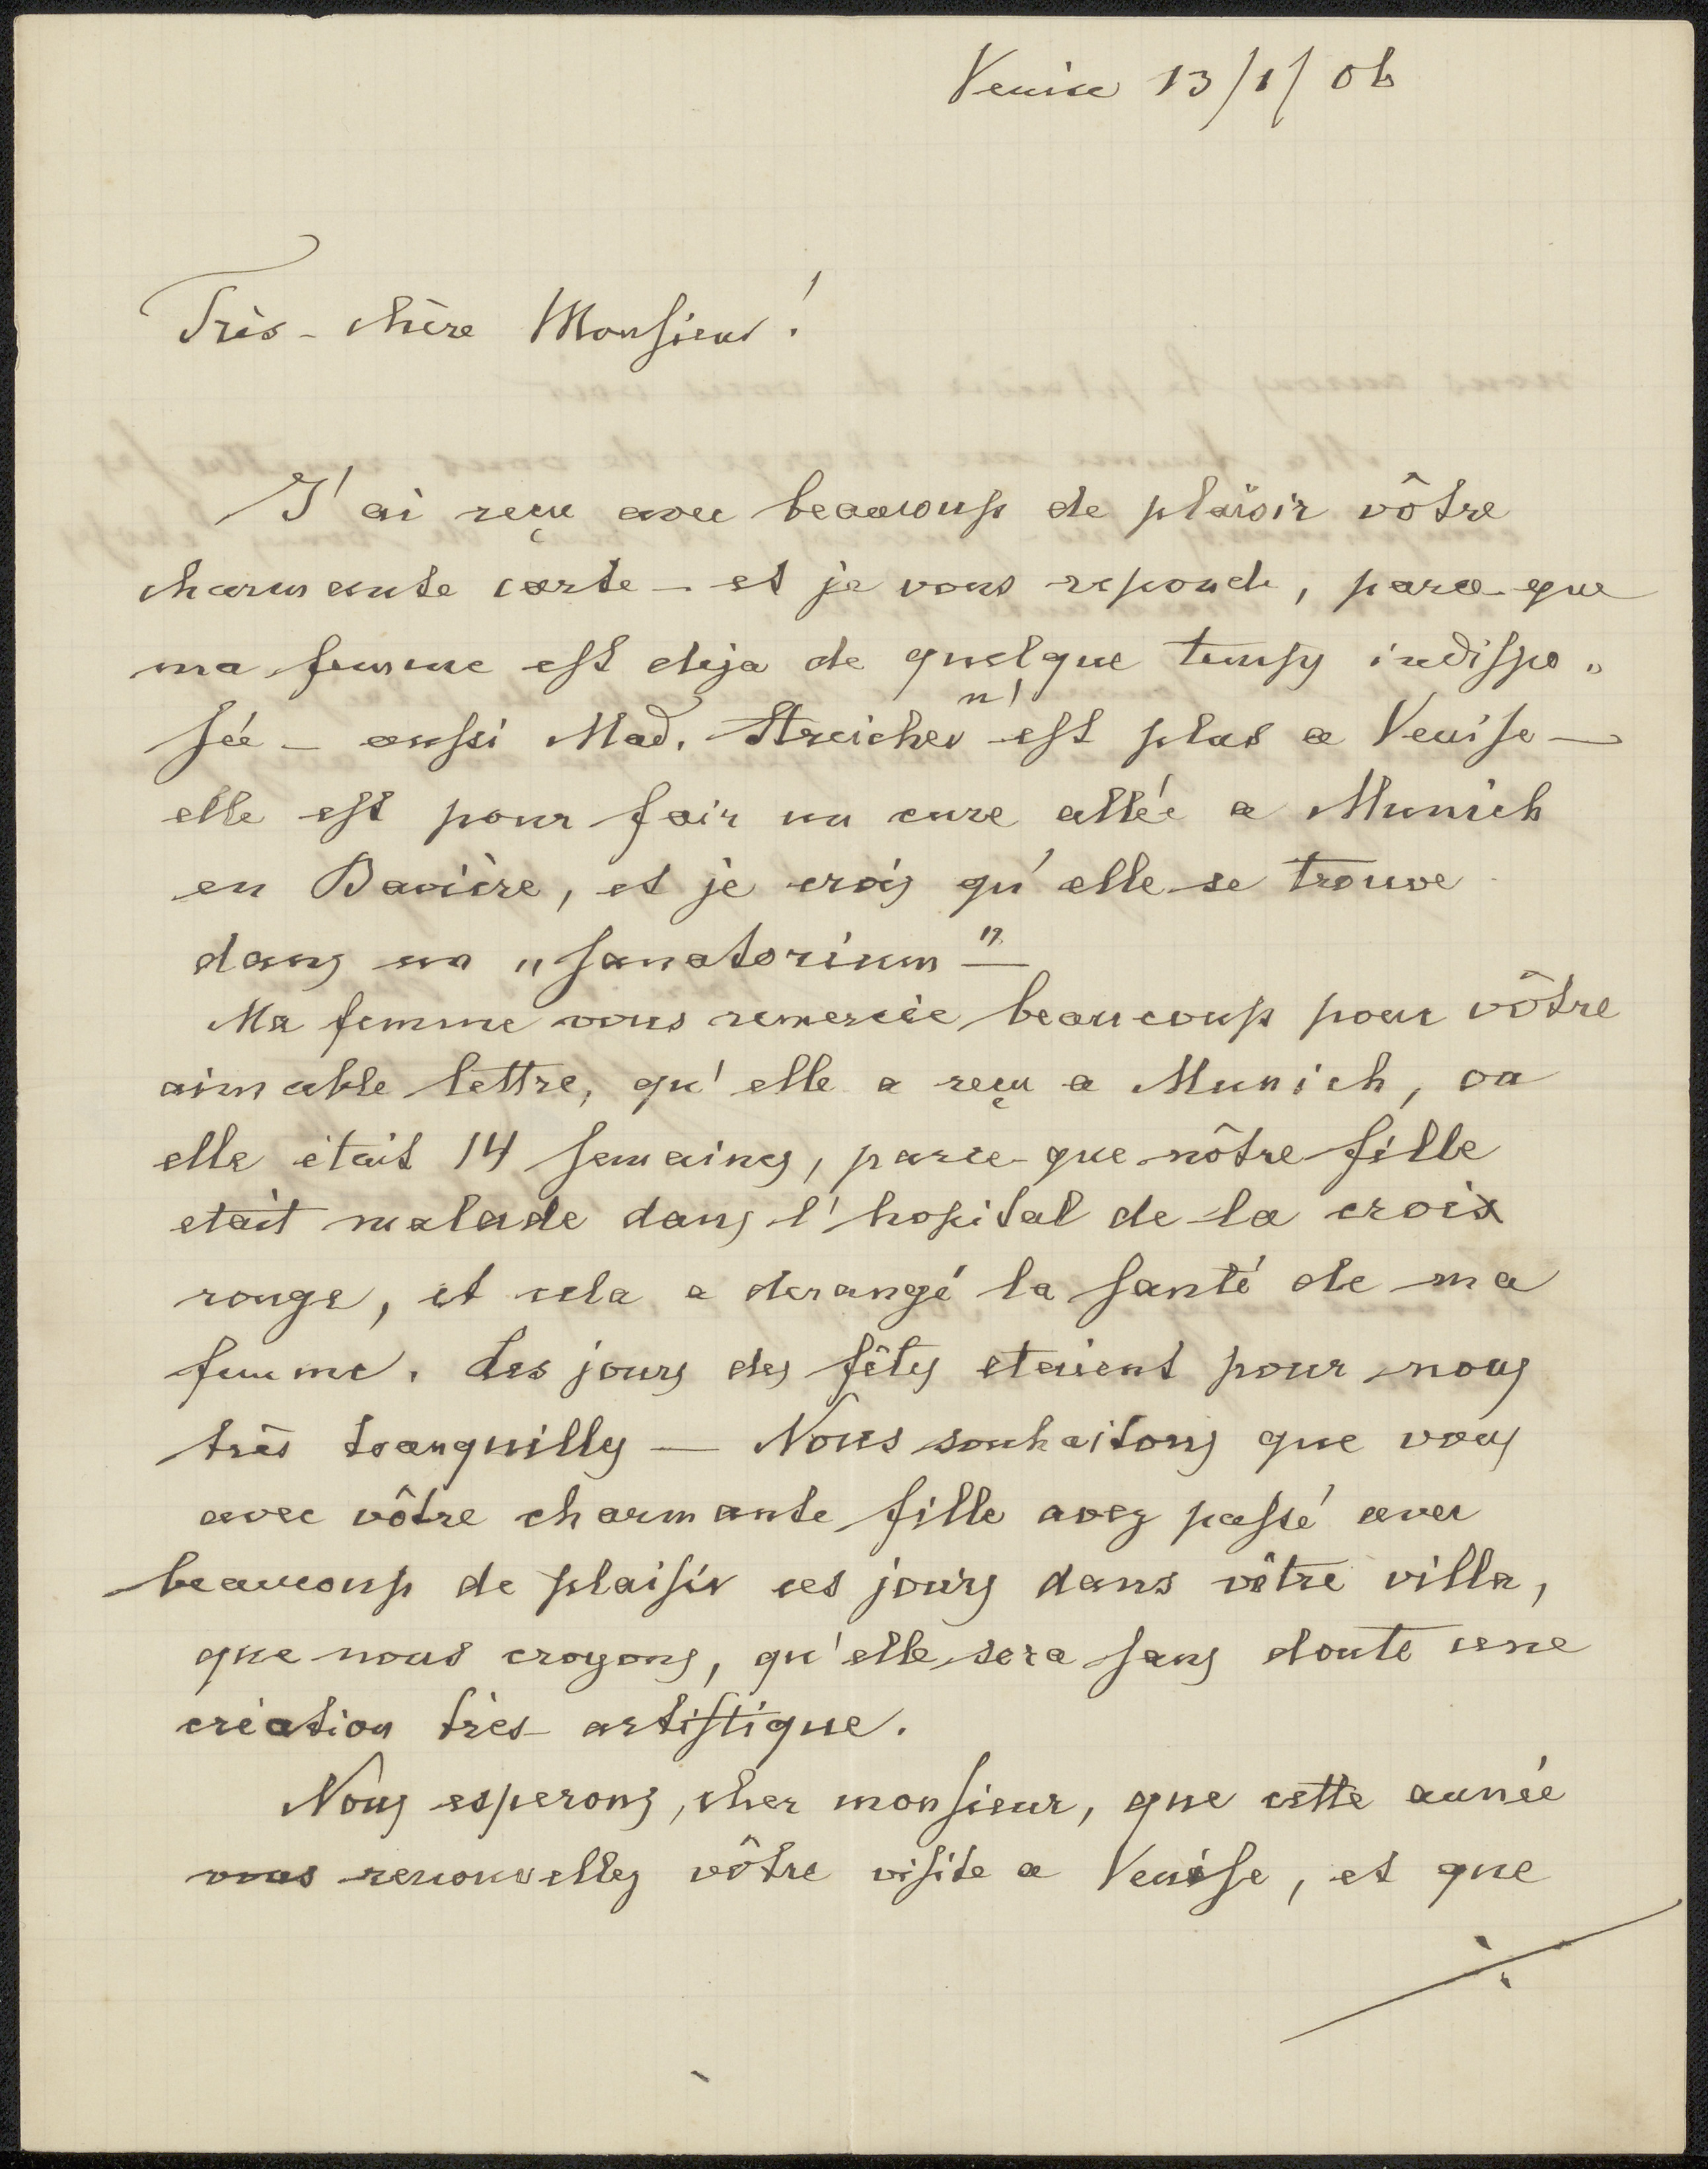 Venice 13/1/06
Très-chère Monsieur!
J'ai reçu avec beaucoup de plaisir vôtre
charmante carte – et je vous reponde, parce-que
ma femme est deja de quelque temps indispo„
sée – aussi Mad. Streicher n'est plus a Venise –
elle est pour fair un cure allée a Munich
en Bavière, et je crois qu'elle se trouve
dans un „sanatorium" –
Ma femme vous remercie beaucoup pour vôtre
aimable lettre, qu'elle a reçu a Munich, ou
elle était 14 semaines, parce-que nôtre fille
etait malade dans l'hopital de la croix
rouge, et cela a derangé la santé de ma
femme. Les jours des fêtes etaient pour nous
très tranquilles – Nous souhaitons que vous
avec vôtre charmante fille avez passé avec
beaucoup de plaisir ces jours dans vôtre villa,
que nous croyons, qu'elle sera sans doute une
création très artistique.
Nous esperons, cher monsieur, que cette année
vous renouvelles vôtre visite a Venise, et que
./.